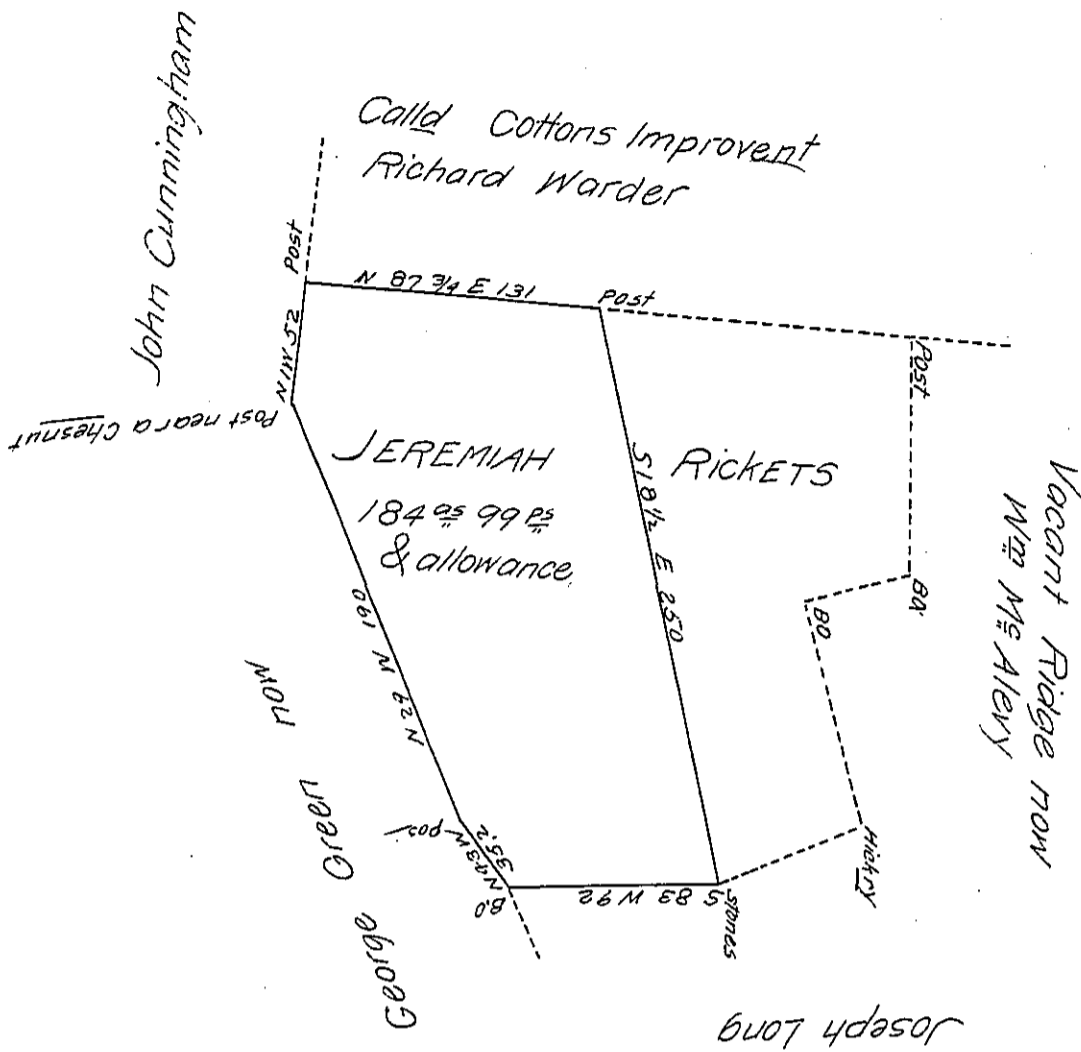 John Cunningham
Calld Cottons Improvent
Richard Warder
Post
N 87 3/4 E 131
Post
Post
N 1 W 52
Post near a Chesnut
JEREMIAH RICKETS
184 as 99 ps
& allowance
S 18 1/2 E 250
Vacant Ridge now
Wm Mc Alevy
BO
BO
N 29 W 190
George Green now
post
N 43 W
35.2
B.O
S 83 W 92
Stones
Hickry
Joseph Long